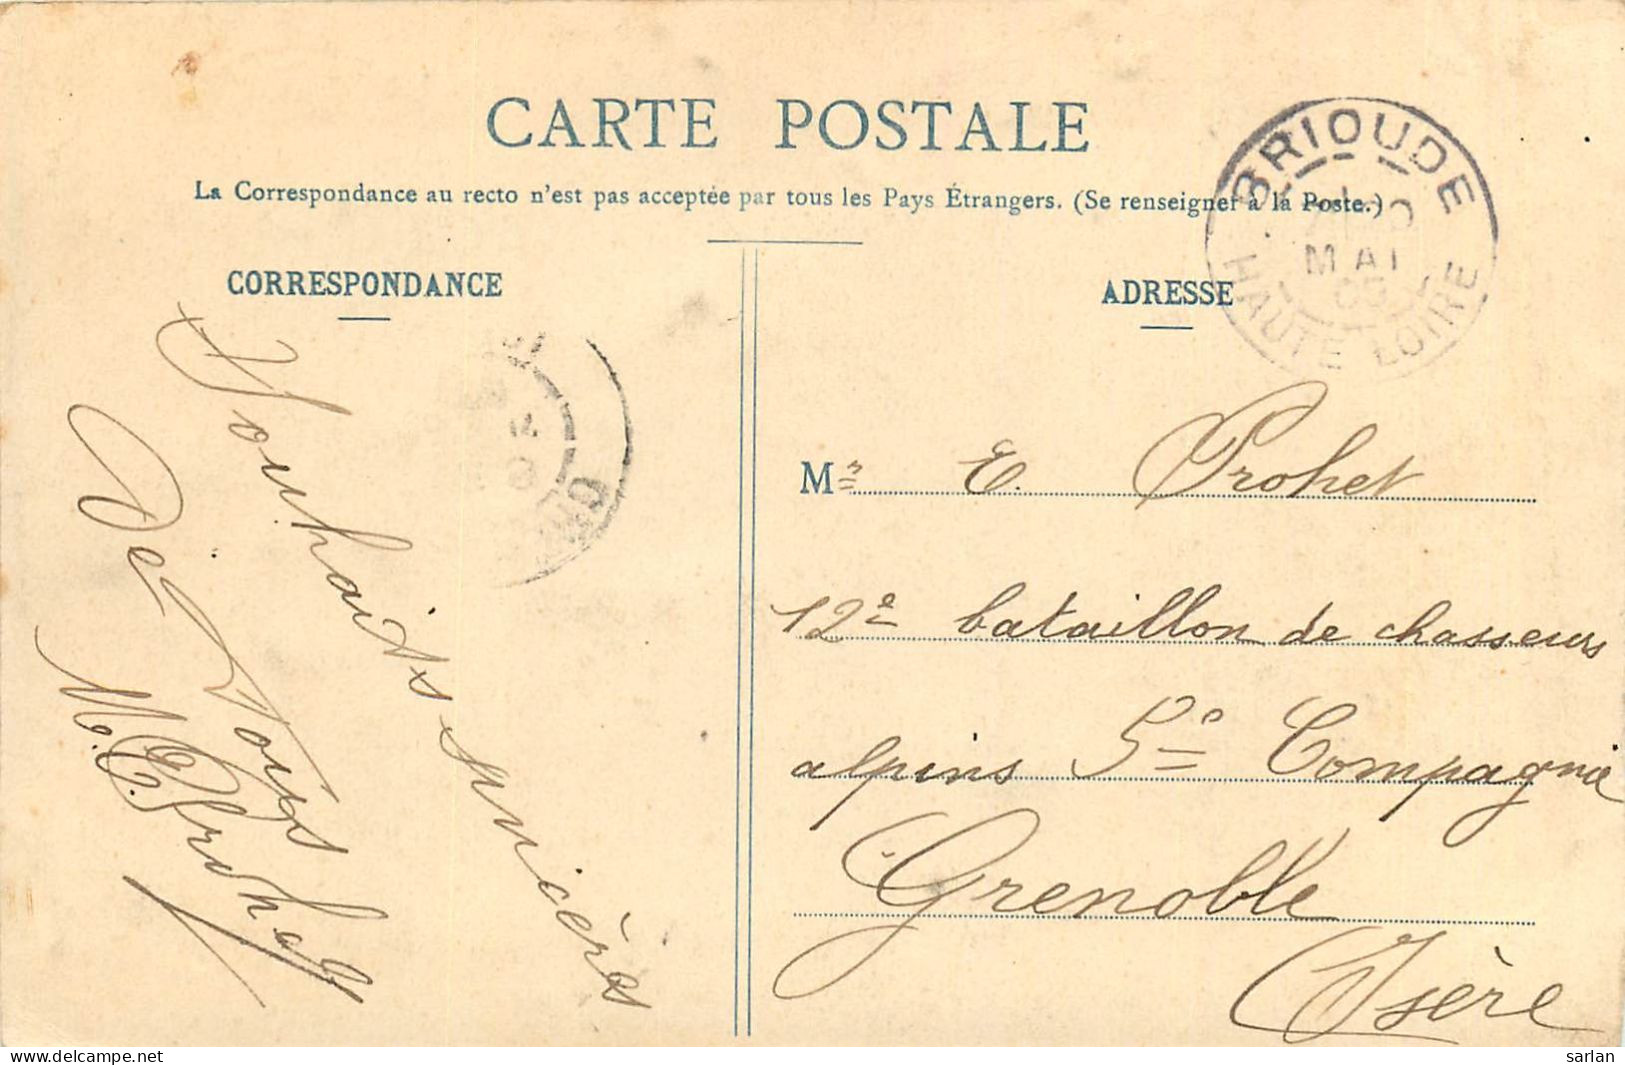 CARTE POSTALE
La Correspondance au recto n'est pas acceptée par tous les Pays Étrangers. (Se renseigner à la Poste.)
CORRESPONDANCE
Souhaits sincères
De Tous
M. E. Prohet
ADRESSE
BRIOUDE
MAI
HAUTE LOIRE
Mr E. Prohet
12e bataillon de chasseurs
alpins 5e Compagnie
Grenoble
Isère
www.delcampe.net
sarlan